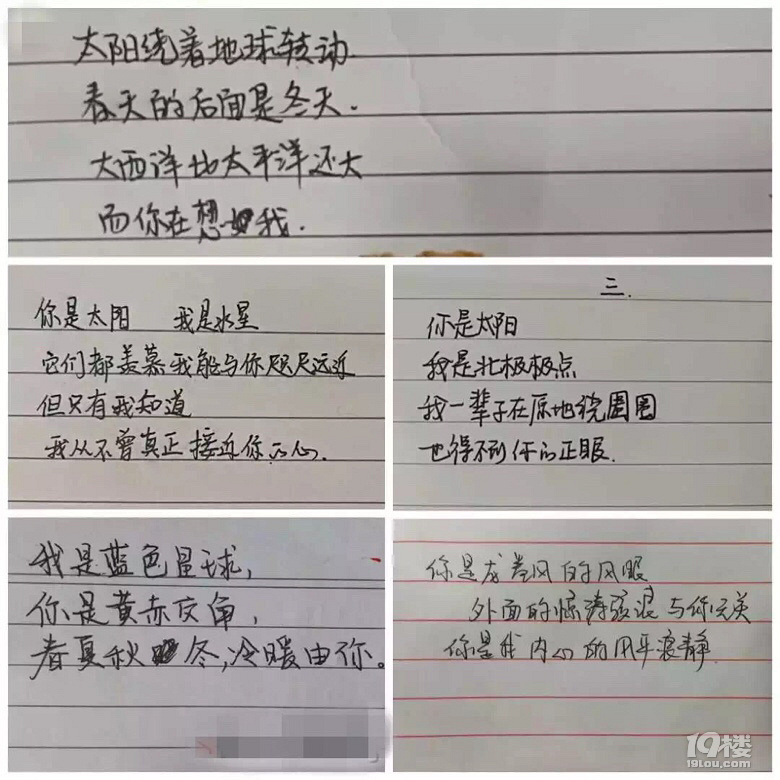 太阳绕着地球转动
春天的后面是冬天.
大西洋比太平洋还大
而你在想我.
你是太阳 我是水星
它们都羡慕我能与你咫尺远近
但只有我知道
我从不曾真正接近你的心.
三.
你是太阳
我是北极极点
我一辈子在原地绕圈圈
也得不到你的正眼.
我是蓝色星球,
你是黄赤交角,
春夏秋冬,冷暖由你。
你是龙卷风的风眼
外面的惊涛骇浪与你无关
你是我内心的风平浪静
19楼
19lou.com